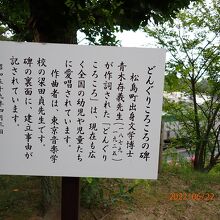 どんぐりころころの碑
松島町出身文学博士
青木存義先生(一八七九〜一九三五)
が作詞された「どんぐり
ころころ」は、現在も広
く全国の幼児や児童たち
に愛唱されています。
作曲者は、東京音楽学
校の梁田貞先生です。
碑の裏面に、建立事由が
記されています。
2022/05/02